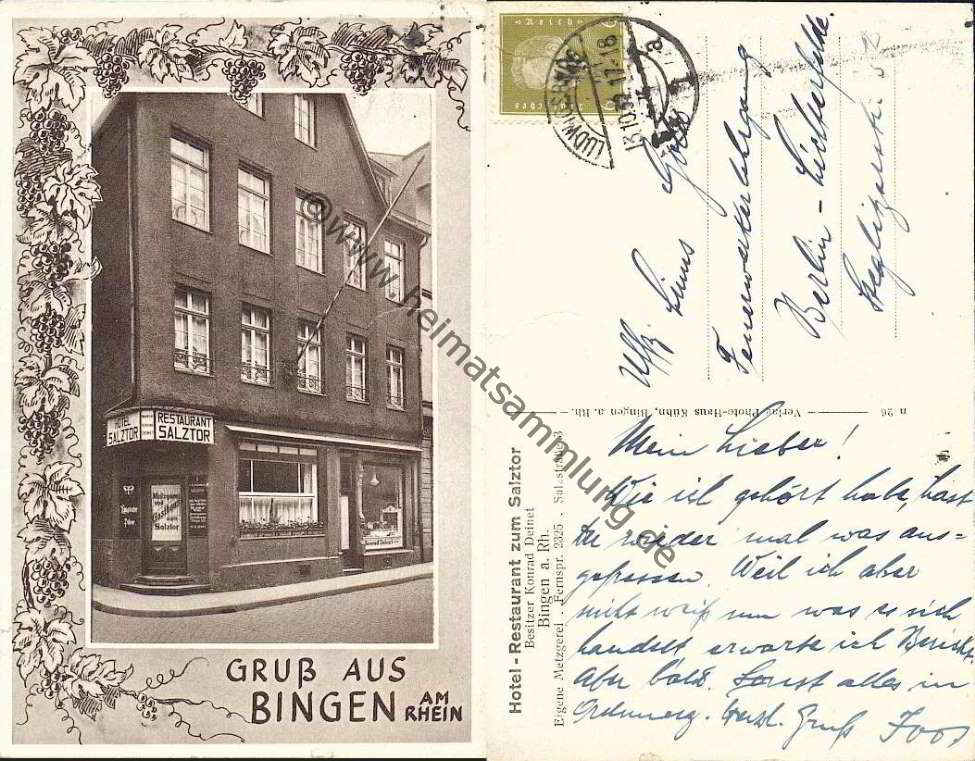 HOTEL
SALZTOR
RESTAURANT
SALZTOR
Metzgerei
Gasthaus
Salztor
GRUß AUS
BINGEN AM
RHEIN
©www.heimatsammlung.de
Reich
LUDWIGSBURG
13.10.32.17-18
a
Uffz
Feuerwerkerlehrgang
Berlin - Lichterfelde
n 26
— Verlag Photo-Haus Kühn, Bingen a. Rh. —
Hotel - Restaurant zum Salztor
Besitzer Konrad Deinet
Bingen a. Rh.
Eigene Metzgerei . Fernspr. 2325 . Salzstraße
Mein Lieber!
Wie ich gehört habe, hast
Du wieder mal was aus-
gefressen. Weil ich aber
nicht weiß um was es sich
handelt erwarte ich Bericht
Aber bald. Sonst alles in
Ordnung. Herzl. Gruß